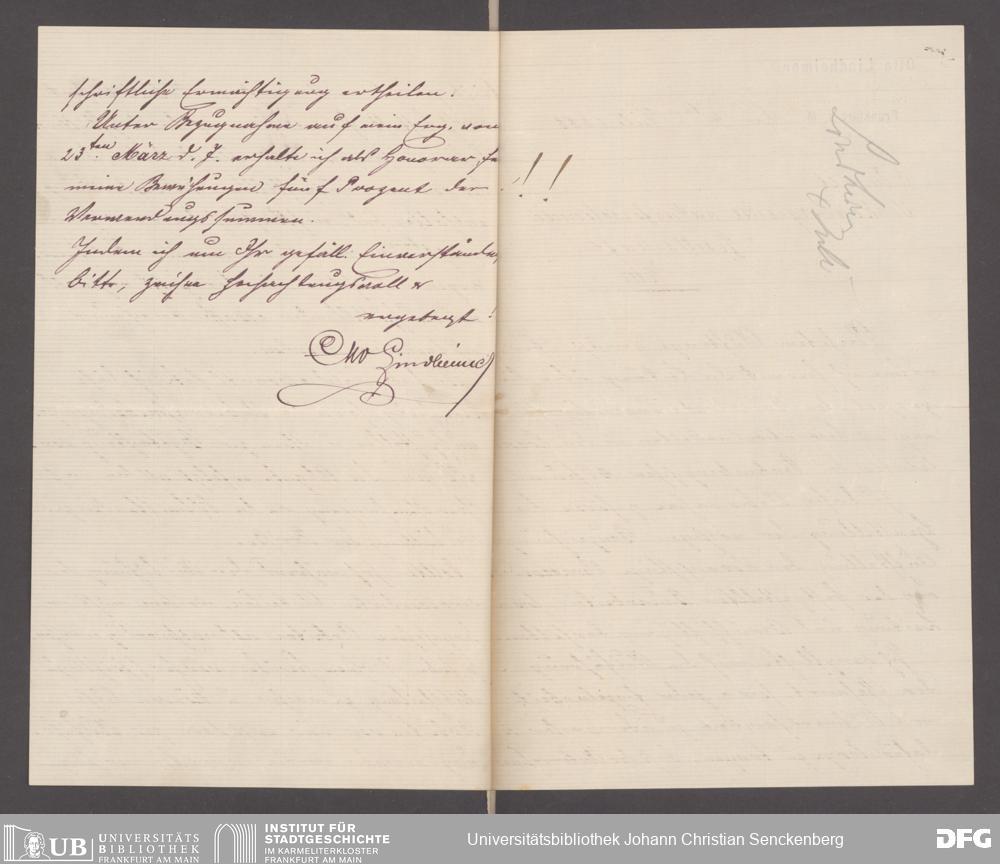 schriftliche Ermächtigung ertheilen.
Unter Bezugnahme auf mein Erg. vom
23ten März d. J. erhalte ich als Honorar für
meine Bemühungen fünf Prozent der !!!
Verwendungssummen.
Indem ich um Ihr gefäll. Einverständniß
bitte, zeichne hochachtungsvoll &
ergebenst!
Otto Lindheimer
UB UNIVERSITÄTS
BIBLIOTHEK
FRANKFURT AM MAIN
INSTITUT FÜR
STADTGESCHICHTE
IM KARMELITERKLOSTER
FRANKFURT AM MAIN
Universitätsbibliothek Johann Christian Senckenberg
DFG